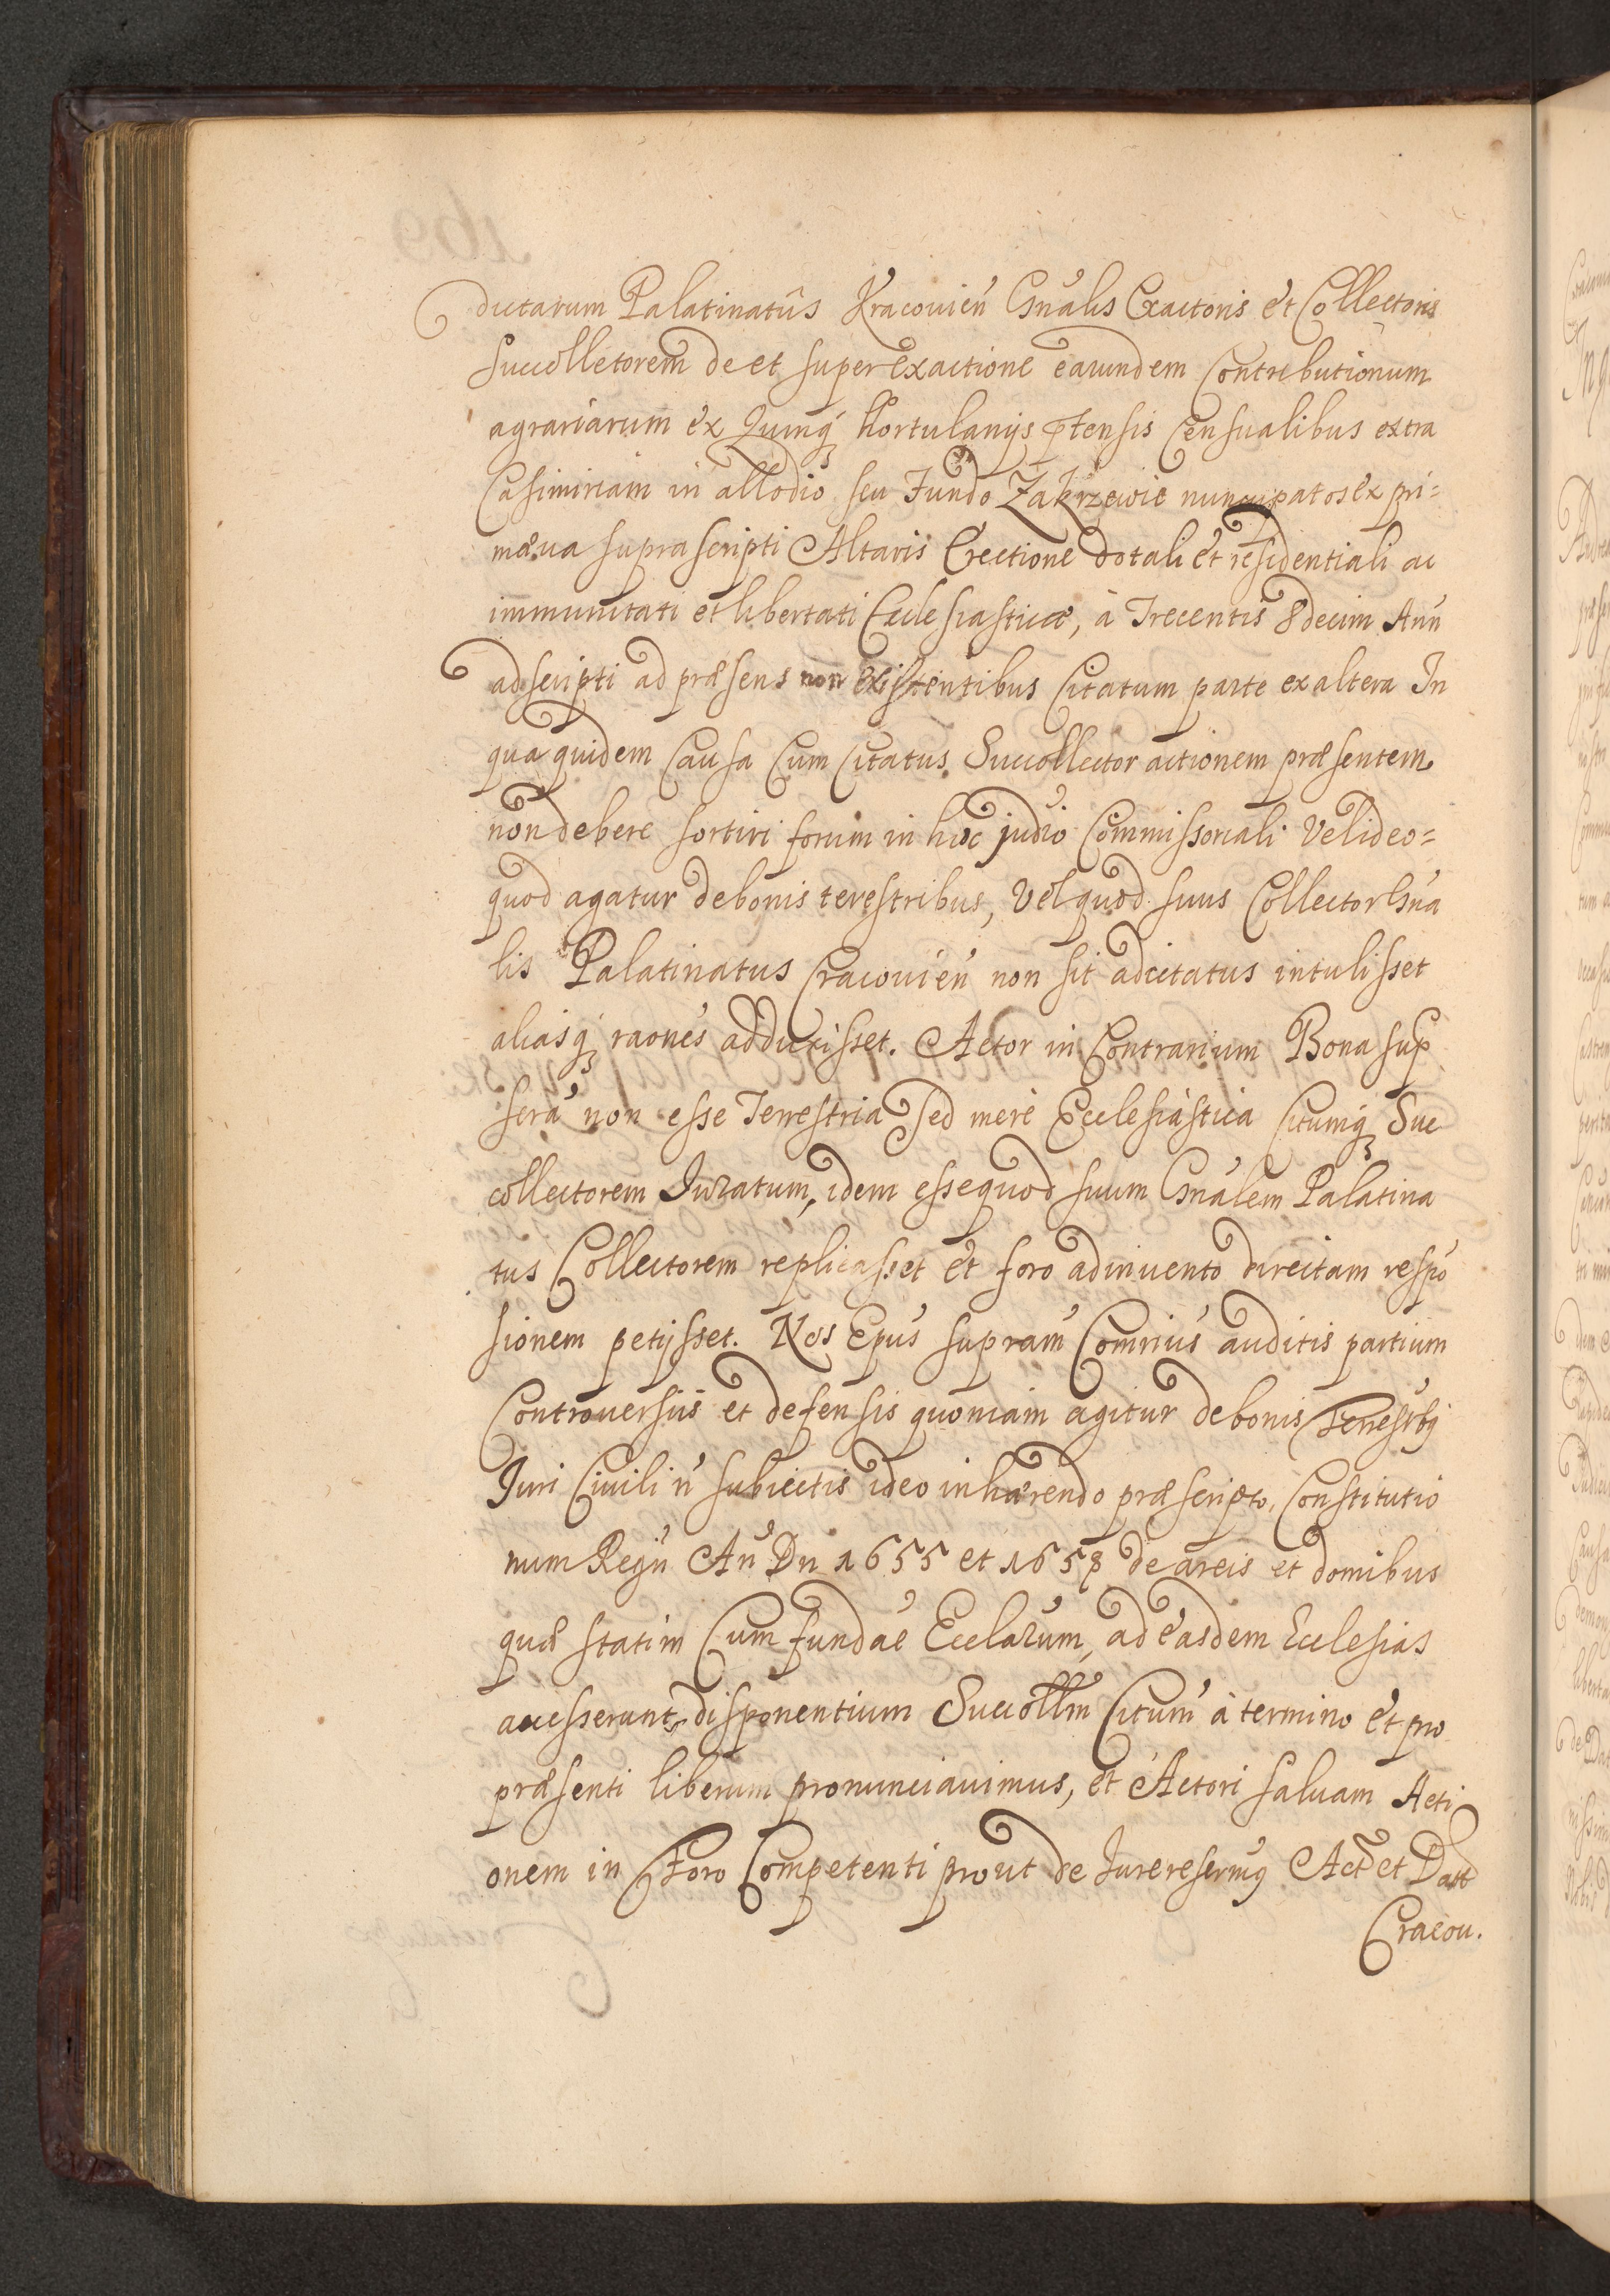 dictarum Palatinatûs Kracouień Gńalis Exactoris et Collectoris
succolletorem de et super exactione earundem Contrebutionum
agrariarum ex Quinq́ hortulanijs ptensis Censualibus extra
Casimiriam in allodio seu Fundo Zakrzewie nuncupatos ex pri=
mæua suprascripti Altaris Erectione dotali et residentiali ac
immunitati et libertati Ecclesiasticæ, à Trecentis 8decim Anń
adscripti ad præsens non existentibus Citatum parte ex altera In
qua quidem Causa Cum Citatus Succollector actionem præsentem
non debere sortiri forum in hoc judio Commissoriali vel ideo=
quod agatur de bonis terestribus, vel quod suus Collector Gńa
lis Palatinatus Cracouień non sit adcitatus intulisset
aliasq́ raones adduxisset. Actor in Contrarium Bona sup
será non esse Terrestria sed mere Ecclesiastica Citumq́ Suc
collectorem Juratum, idem esse quod suum Gńalem Palatina
tus Collectorem replicasset et foro adinuento directam respō
sionem petijsset. Nos Epuś supram̃ Comriuś auditis partium
Controuersiis et defensis quoniam agitur de bonis Terrestrbq́
Juri Ciuili ń subiectis ideo inhærendo præscripto, Constitutio
num Regń Ań Dn 1655 et 1658 de areis et domibus
quæ statim Cum fundáe Ecclarum, ad easdem Ecclesias
accesserunt, disponentium Succollm̃ Citum̃ à termino et pro
præsenti liberum pronunciauimus, et Actori saluam Acti
onem in Foro Competenti prout de Jure reseruiq́ Act et Datt
Cracou.